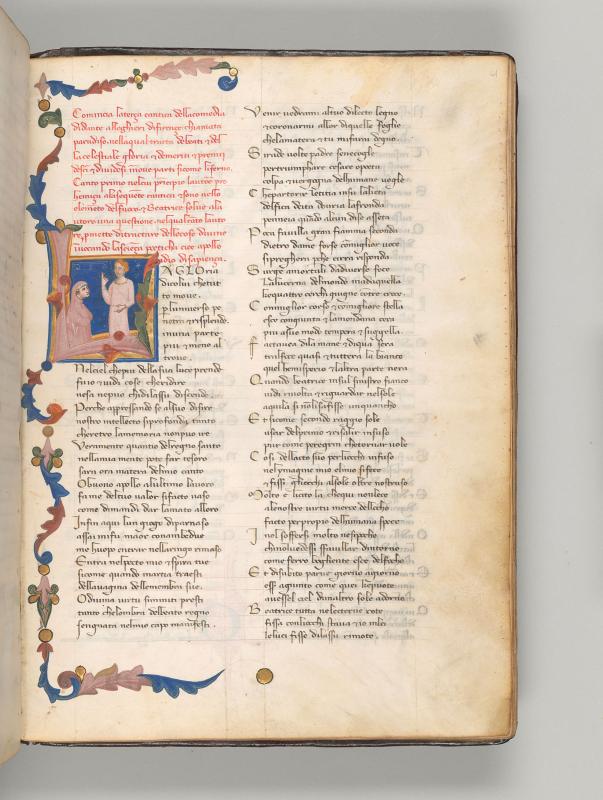 Comincia la terça cantica della comedia
di dante allaghieri di firençe chiamata
paradiso nella qual tracta de beati & del
la celestiale gloria & de meriti & premii
Canto primo nel cui principio lautore pro
hemiça alla sequente cantica & sono nello
elemento del fuoco & Beatrice solve alla
utore una questione nel qual canto lauto
re promette di tractare delle cose divine
invocando la sciença poetica cioe appollo
idio di sapiença.
LA GLOria
di colui che tut
to move.
per luniverso pe
netra & risplende.
in una parte
piu & meno al
trove.
Nel ciel che piu della sua luce prende
fu io & vidi cose che ridire
ne sa ne puo chi di lassu discende.
Perche appressando se al suo disire
nostro intellecto si profonda tanto
che retro la memoria non puo ire
Veramente quantio del regno santo
nella mia mente pote far tesoro
sara ora matera del mio canto
O buono apollo alultimo lavoro
fa me del tuo valor si facto vaso
come dimandi dar lamato alloro
Infin a qui lun giogo di parnaso
assai mi fu ma or con amedue
me huopo entrar nellaringo rimaso
Entra nel pecto mio & spira tue
si come quando marsia traesti
della vagina delle membra sue.
O divina virtu si mmiti presti
tanto che lombra del beato regno
segnata nel mio capo manifesti.
Venir vedrami al tuo dilecto legno
& coronarmi allor di quelle foglie
che la matera & tu mi farai degno
Si rade volte padre sene coglie
per triumphare o cesare o poeta
colpa & vergogna dellhumane voglie
Che partorir letitia in su la lieta
delfica deita devria la fronda
peneia quando alcun di se asseta
Poca favilla gran fiamma seconda
dietro da me forse con miglior voce
si preghera perche cirra risponda
Surge a mortali da diverse foce
la lucerna del mondo ma da quella
che quattro cerchi giugne con tre croci
Con miglior corso & con migliore stella
esce congiunta & la mondana cera
piu a suo modo tempera & suggella.
Facta avea di la mane & di qua sera
tal foce quasi & tutto era la bianco
quel hemisperio & laltra parte nera
Quando beatrice in sul sinistro fianco
vidi rivolta & riguardar nel sole
aquila si non li saffisse unquanco
Et si come secondo raggio sole
uscir del primo & risalir in suso
pur come peregrin che tornar vole
Cosi dellacto suo per liocchi infuso
nel ymagine mia el mio si fece
& fissi gliocchi al sole oltre nostruso
Molto e licito la che qui non lece
alle nostre virtu merce del loco
facto per proprio dellhumana spece
I nol soffersi molto ne si poco
chio nol vedessi sfavillar dintorno
come ferro bogliente esce del foco
Et di subito parve giorno a giorno
essere aggiunto come quei che puote
avesse il ciel dun altro sole adorno
Beatrice tutta nelecterne rote
fissa con liocchi stava & io in lei
le luci fisse di lassu rimote.